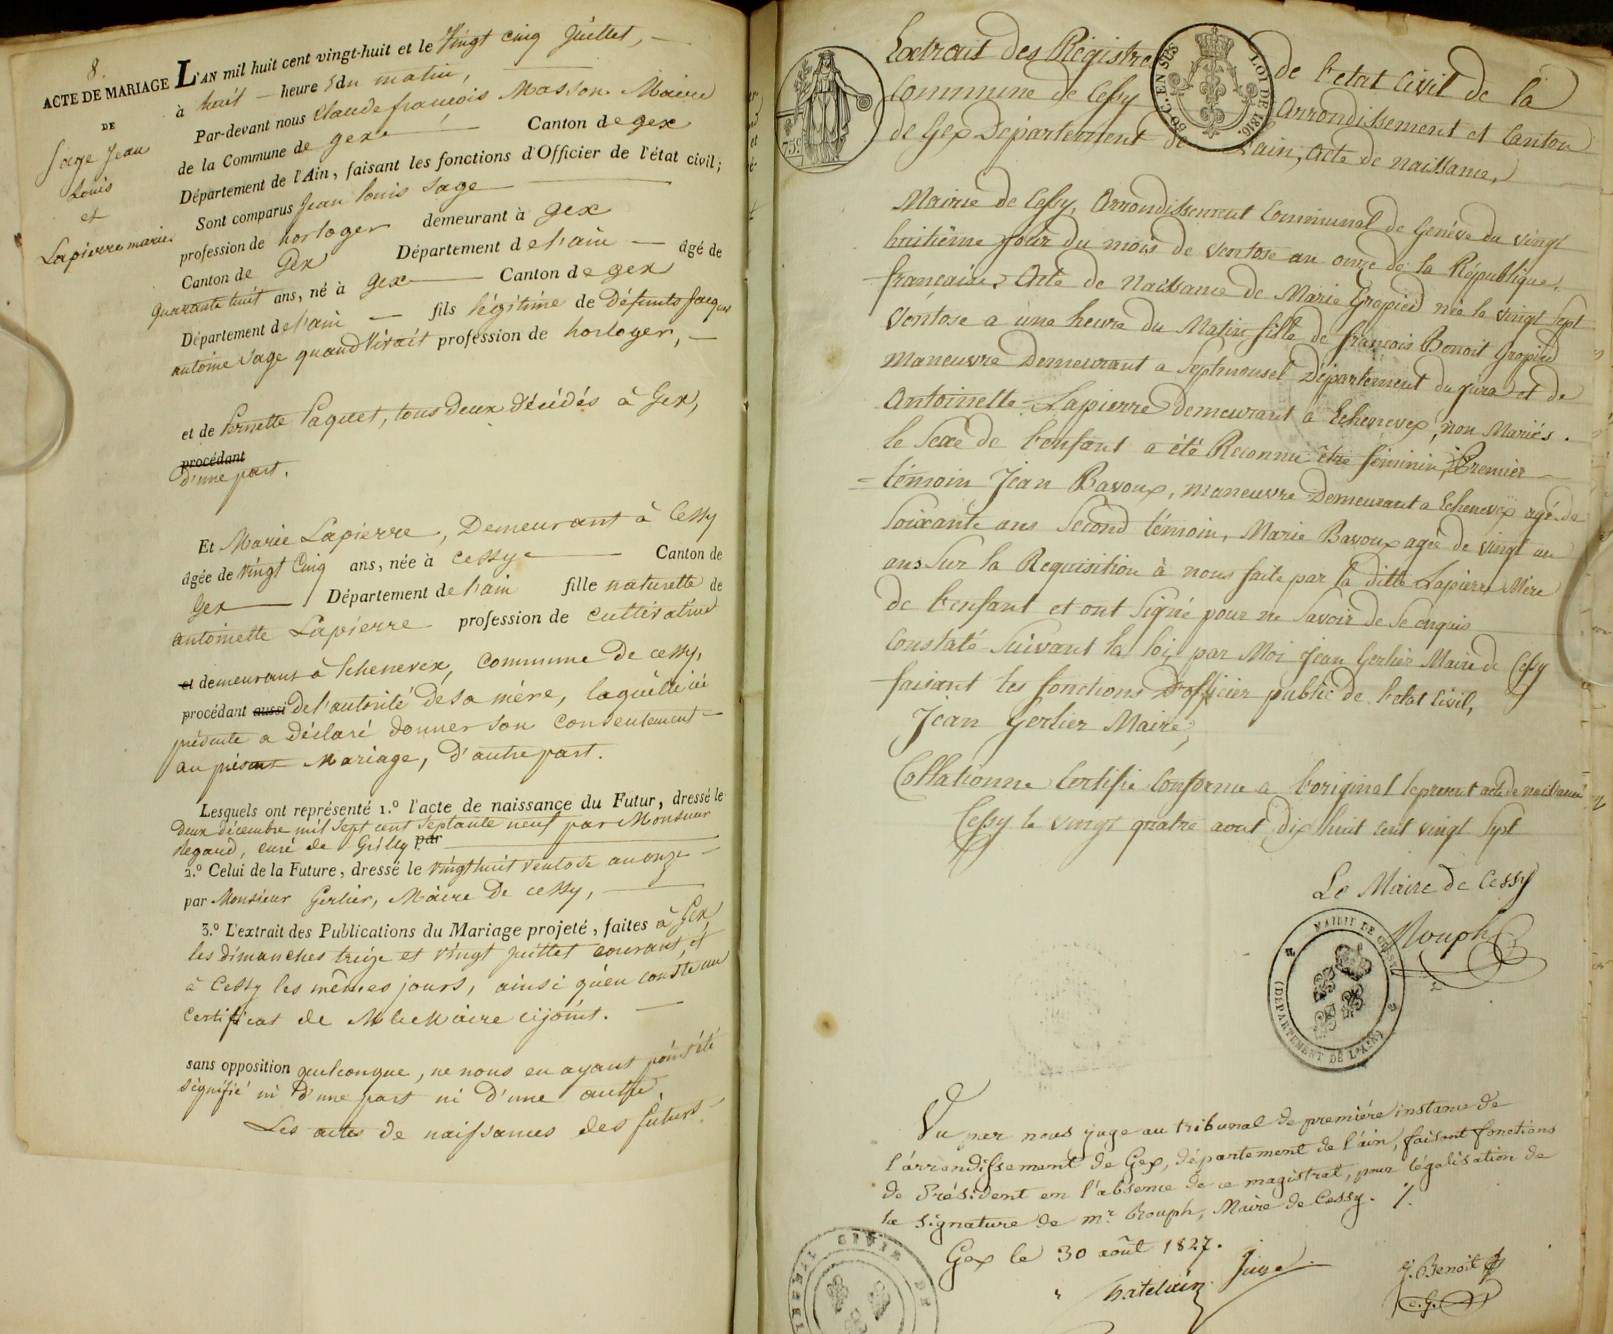 8.
ACTE DE MARIAGE
DE
Sage Jean
Louis
et
Lapierre marie.
L'AN mil huit cent vingt-huit et le Vingt cinq Juillet,
à huit heure s du matin,
Par-devant nous Claude françois Masson Maire
de la Commune de gex Canton de gex
Département de l'Ain, faisant les fonctions d'Officier de l'état civil;
Sont comparus Jean Louis Sage
profession de horloger demeurant à gex
Canton de Gex Département de l'ain âgé de
quarante huit ans, né à gex Canton de gex
Département de l'ain fils légitime de Défunts Jaques
antoine Sage quand Vivait profession de horloger,
et de Pernette Paquet, tous deux décédés à Gex,
procédant
d'une part.
Et Marie Lapierre, Demeurant à Cessy
âgée de vingt Cinq ans, née à Cessy Canton de
Gex Département de l'ain fille naturelle de
antoinette Lapierre profession de cultivatrice
et demeurant à Echenevex, Commune de cessy,
procédant aussi de l'autorité de sa mère, laquelle ici
présente a déclaré donner son consentement
au présent Mariage, d'autre part.
Lesquels ont représenté 1.º l'acte de naissance du Futur, dressé le
deux décembre mil sept cent septante neuf par Monsieur
Regaud, curé de Grilly par
2.º Celui de la Future, dressé le vingt huit ventose an onze
par Monsieur Gerlier, Maire de cessy,
3.º L'extrait des Publications du Mariage projeté, faites à Gex,
les dimanches treize et vingt juillet courant, et
à Cessy les mêmes jours, ainsi qu'en conste un
certificat de Mr le Maire cijoint.
sans opposition quelconque, ne nous en ayant point été
signifié ni d'une part ni d'une autre.
Les actes de naissances des futurs
Extrait des Régistres de l'etat Civil de la
Commune de Cessy Arrondissement et Canton
de Gex Département de l'ain, Acte de naissance,
50 C. EN SUS
LOI DE 1816.
75c
Mairie de Cessy, Arrondissement Communal de Genève du vingt
huitième jour du mois de ventose an onze de la République
française, Acte de Naissance de Marie Gropied née le vingt sept
Ventose a une heure du Matin fille de françois Benoit Gropied
Maneuvre Demeurant a Septmousel Département du jura et de
Antoinette Lapierre demeurant à Echenevex, non Mariés.
le Sexe de l'enfant a été Reconnu être féminin, Premier
témoin Jean Bavoux, maneuvre Demeurant a Echenevex agé de
Soixante ans Second témoin, Marie Bavoux agée de vingt un
ans Sur la Requisition à nous faite par la ditte Lapierre Mère
de l'enfant et ont signé pour ne Savoir de Se enquis
Constaté Suivant la loi par Moi Jean Gerlier Maire de Cessy
faisant les fonctions d'officier public de l'etat Civil,
Jean Gerlier Maire,
Collationne Certifié Conforme a l'original le present acte de naissance
Cessy le vingt quatre aout dix huit cent vingt sept
Le Maire de Cessy
Rouph
MAIRIE DE CESSY
(DEPARTEMENT DE L'AIN)
Vu per nous juge au tribunal de première instance de
l'arrondissement de Gex, département de l'ain, faisant fonctions
de Président en l'absence de ce magistrat, pour légalisation de
la signature de mr. Rouph, Maire de Cessy.
Gex le 30 août 1827.
Juge
J. Benoit
c.g.
TRIBUNAL CIVIL DE